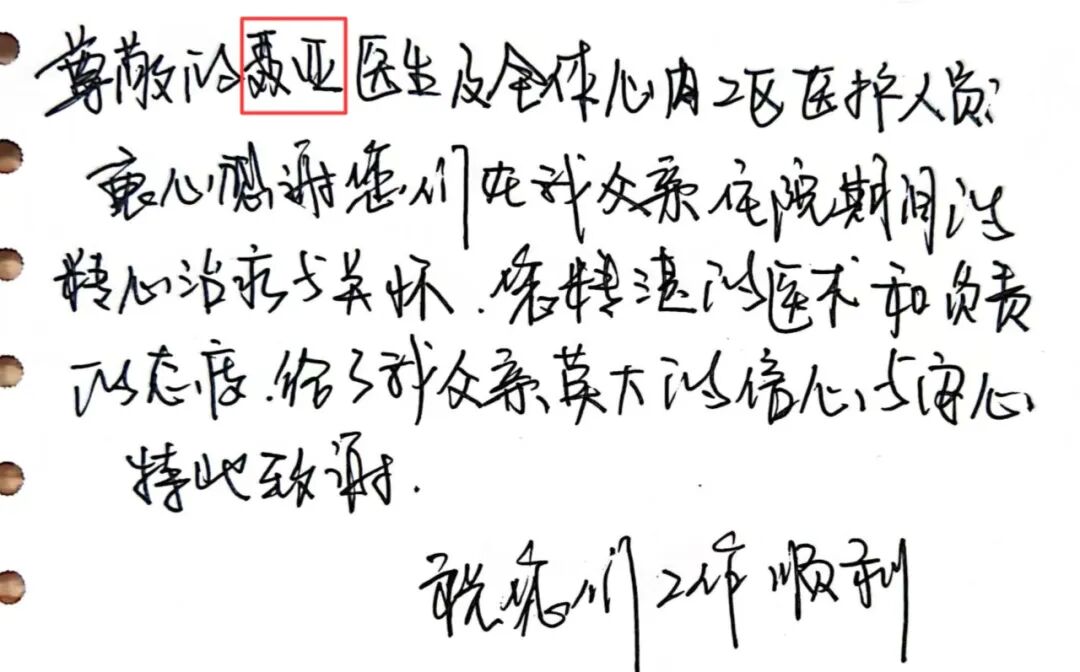 尊敬的聂亚医生及全体心内二区医护人员:
衷心感谢您们在我父亲住院期间的
精心治疗与关怀.您精湛的医术和负责
的态度.给了我父亲莫大的信心与安心
特此致谢.
祝您们工作顺利